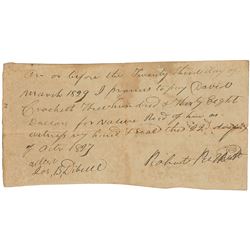 On or before the Twenty third day of
march 1829 I promise to pay David
Crockett Three hundred & Thirty Eight
Dollars for Value Recd of him as
witness my hand & seal this 22 day
of Octr 1827
attest
Robert